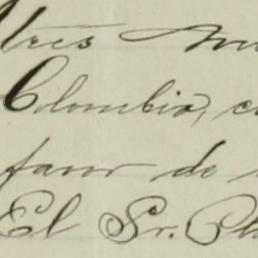 tres
Colombia,
favor de
El Sr.